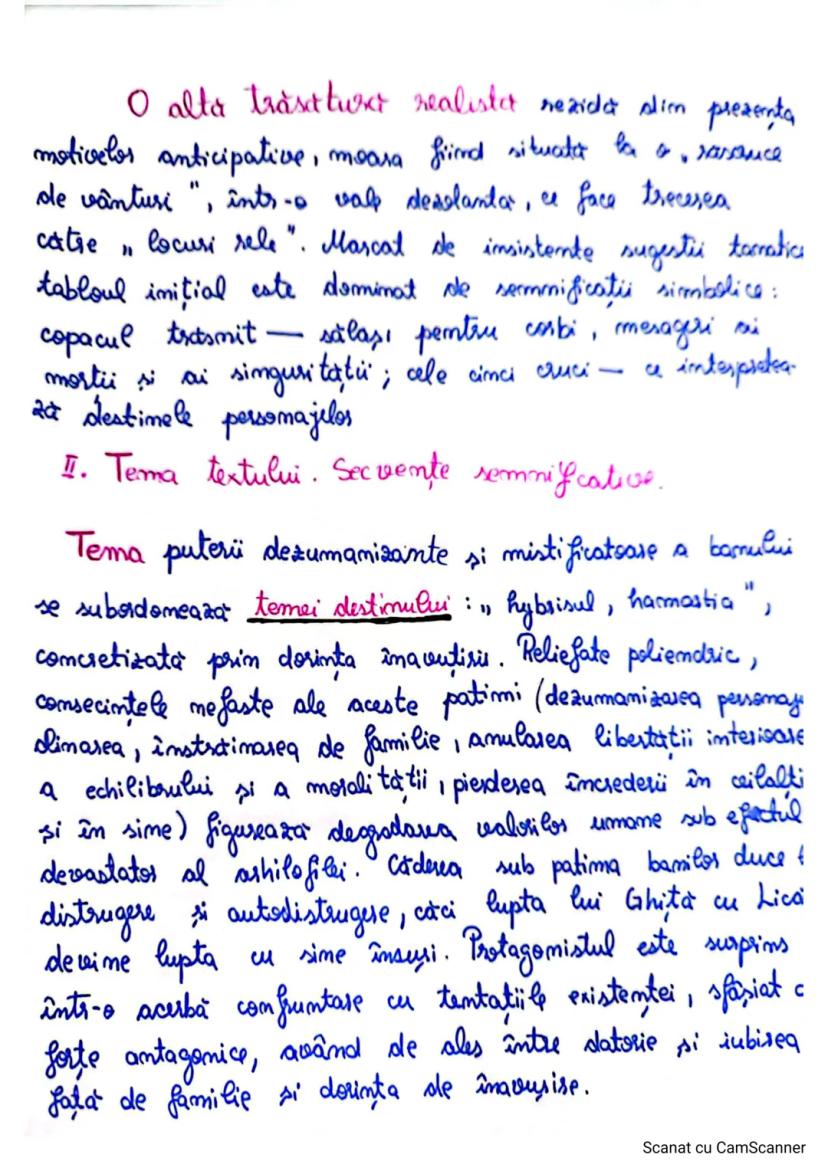 O altă trăsătură realistă rezidă din prezența
motivelor anticipative, moara fiind situată la o „rascruce
de vânturi", într-o vale dezolantă, ce face trecerea
către „locuri rele". Mascat de insistente sugestii tomatice
tabloul inițial este dominat de semnificații simbolice:
copacul trăsnit — sălași pentru corbi, mesageri ai
morții și ai singurității; cele cinci cruci — ce interpretea-
ză destinele personajelor
II. Tema textului. Secvențe semnificative.
Tema puterii dezumanizante și mistificatoare a banului
se subordonează temei destinului: „hybrisul, harmartia",
concretizată prin dorința înavuțirii. Reliefate poliendric,
consecințele nefaste ale aceste patimi (dezumanizarea personaj
olinarea, înstrăinarea de familie, anularea libertății interioare
a echilibrului și a moralității, pierderea încrederii în ceilalți
și în sine) figurează degradarea valorilor umane sub efectul
devastator al arhilofilei. Căderea sub patima banilor duce
distrugere și autodistrugere, căci lupta lui Ghiță cu Lică
devine lupta cu sine însuși. Protagonistul este surprins
într-o acerbă confruntare cu tentațiile existenței, sfâșiat
forțe antagonice, având de ales între datorie și iubirea
față de familie și dorința de înavuțire.
Scanat cu CamScanner